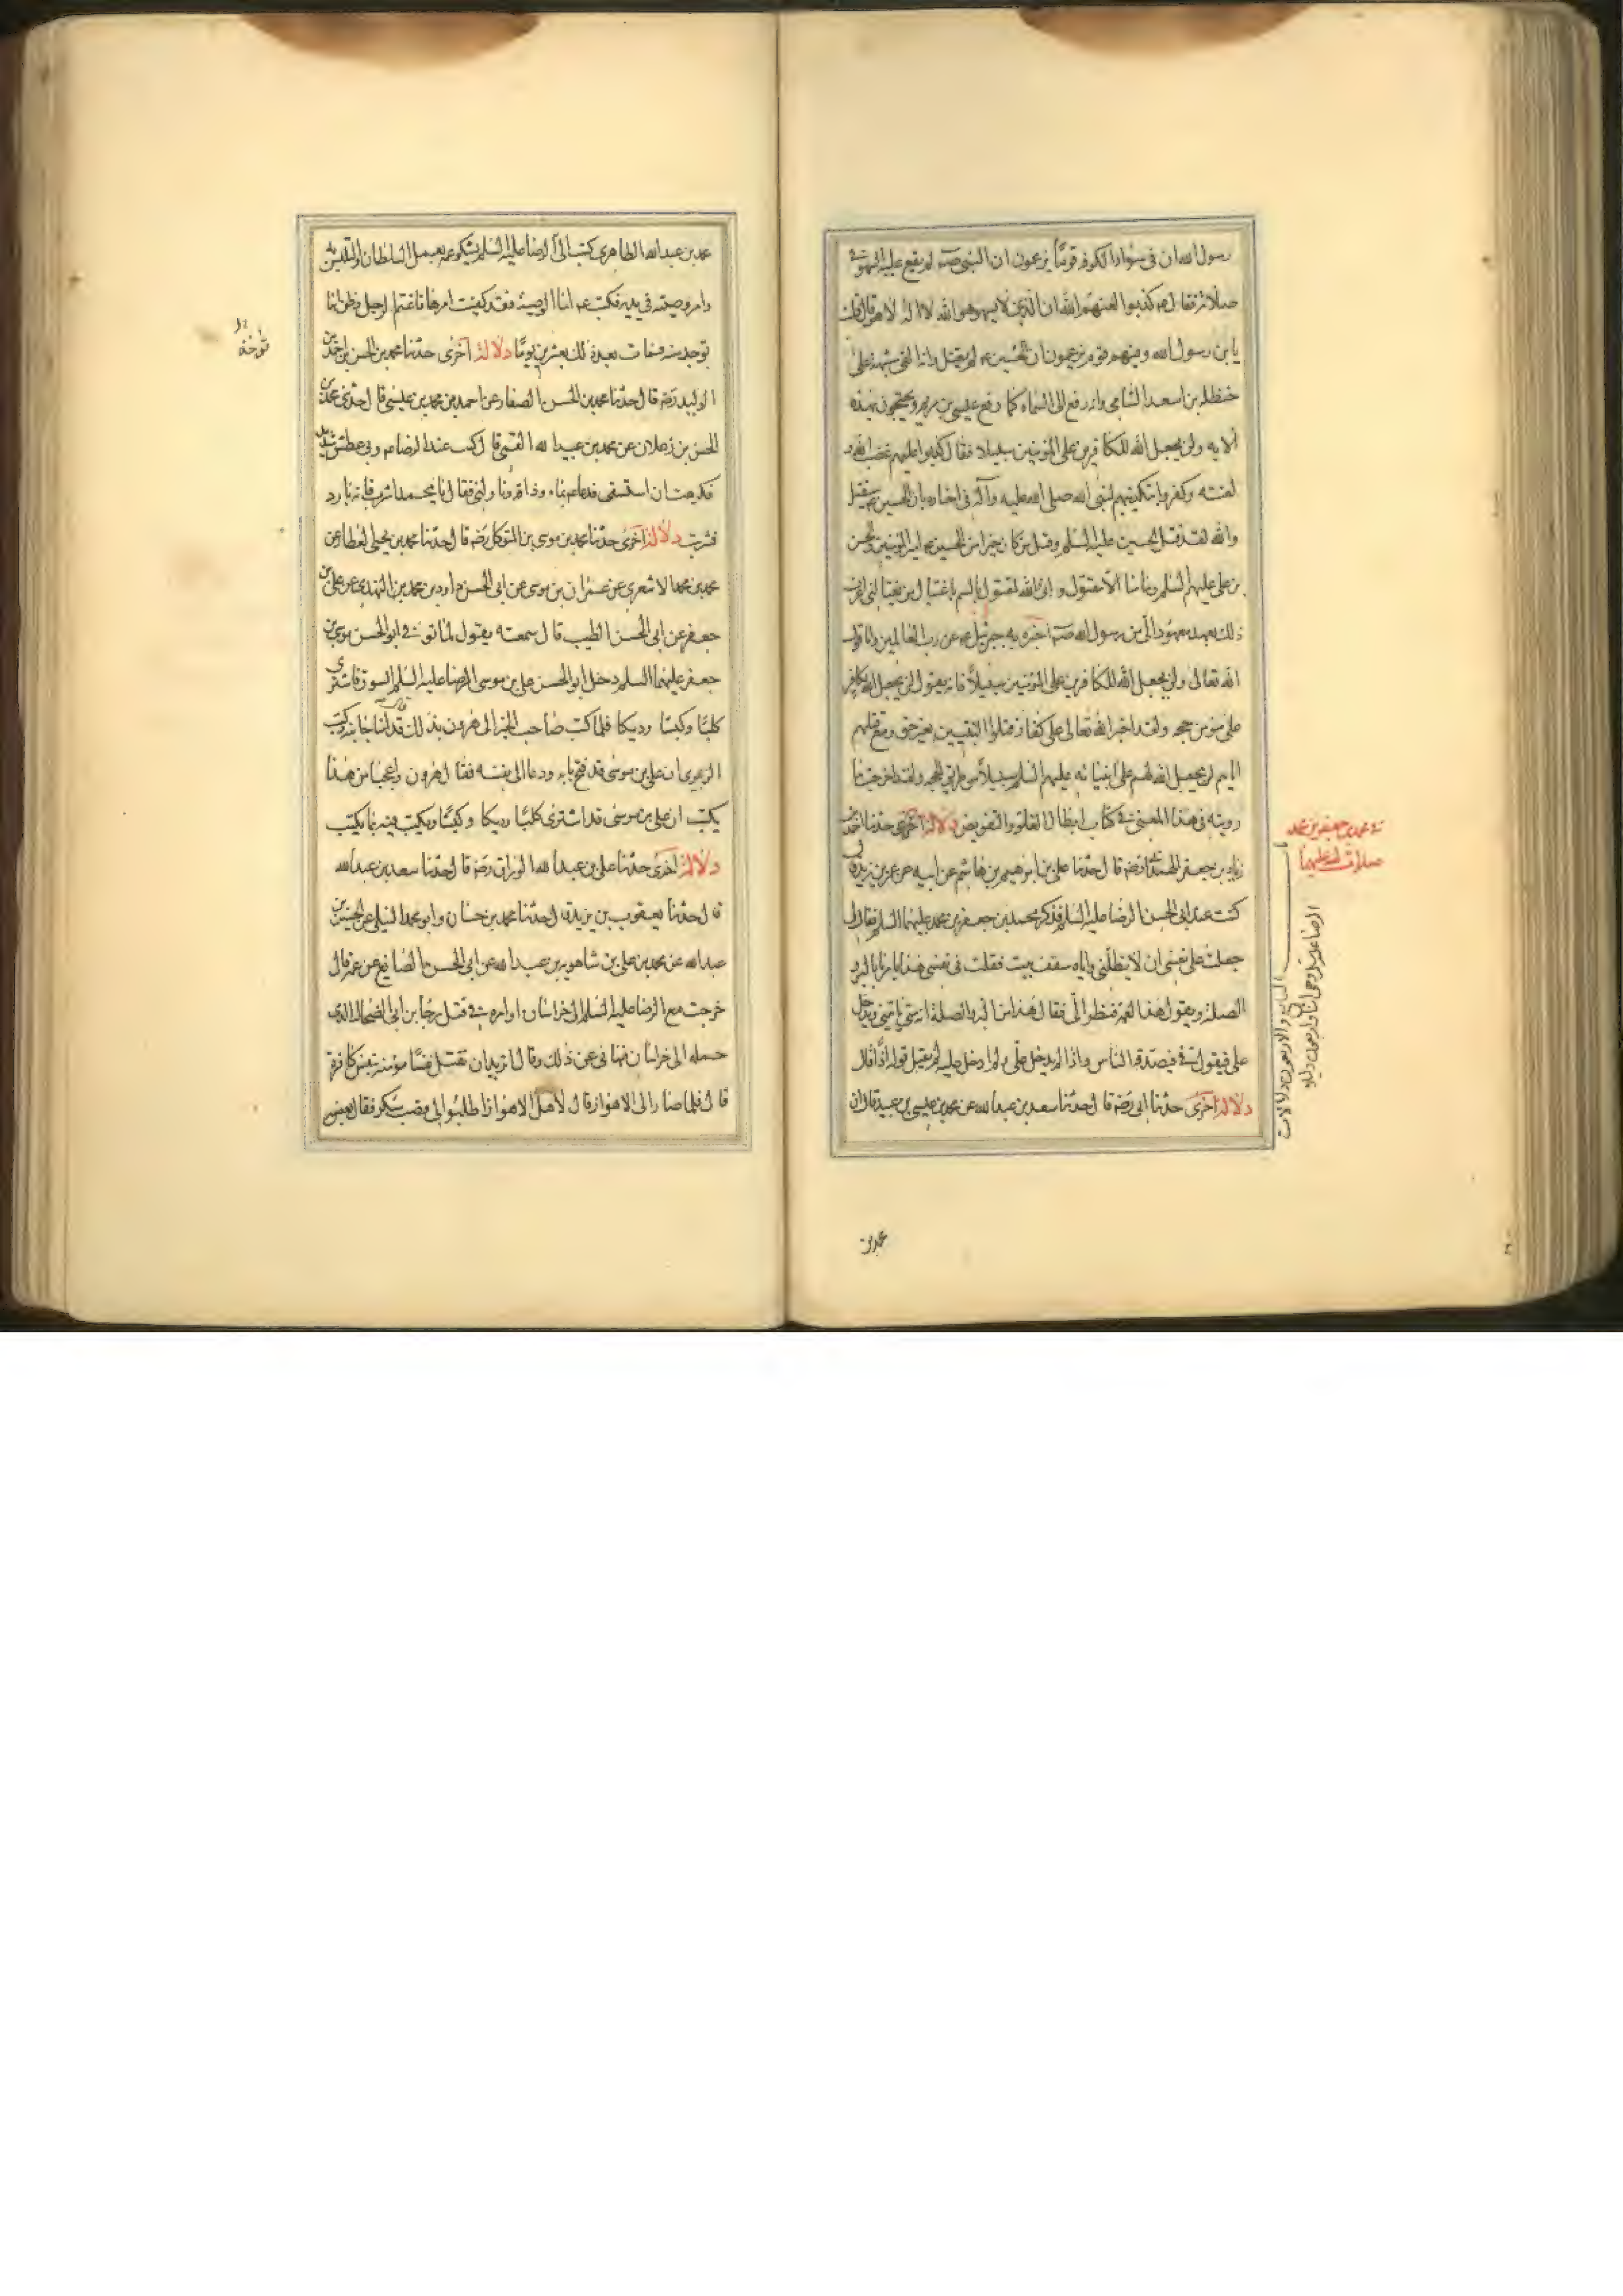 رسول الله ان فى سواد الكوفه قوما يزعمون ان النبى صـ لم يقع عليه السهو فى
صلاته فقال عـ كذبوا لعنهم الله ان الذى لا يسهو هو الله لا اله الا هو قال قلت
يا بن رسول الله وفيهم قوم يزعمون ان الحسين عـ لم يقتل وانه القى شبهه على
حنظلة بن اسعد الشامى وانه رفع الى السماء كما رفع عيسى بن مريم ويحتجون بهذه
الايه ولن يجعل الله للكافرين على المؤمنين سبيلا فقال كذبوا عليهم غضب الله و
لعنته وكفروا بتكذيبهم لنبى الله صلى الله عليه وآله فى اخباره بان الحسين عـ سيقتل
والله لقد قتل الحسين عليه السلم وقتل من كان خيرا من الحسين عـ امير المؤمنين والحسن
بن على عليهم السلم وما منا الا مقتول و انى والله لمقتول بالسم باغتيال من يغتالنى اعرف
ذلك بعهد معهود الى من رسول الله صـ اخبره به جبرئيل عـ عن رب العالمين واما قول
الله تعالى ولن يجعل الله للكافرين على المؤمنين سبيلا فانه يقول لن يجعل الله لكافر
على مؤمن حجه ولقد اخبر الله تعالى على كفار قتلوا النبيين بغير حق ومع قتلهم
اياهم لن يجعل الله لهم على انبيائه عليهم السلم سبيلا من طريق الحجه ولقد اخرجت ما
رويته فى هذا المعنى فى كتاب ابطال الغلو والتفويض دلالة اخرى حدثنا احمد بن
زياد بن جعفر الهمدانى رضه قال حدثنا على بن ابرهيم بن هاشم عن ابيه عن عمير بن يزيد قال
كنت عند ابى الحسن الرضا عليه السلم فذكر محمد بن جعفر بن محمد عليهما السلم فقال انى
جعلت على نفسى ان لا يظلنى واياه سقف بيت فقلت فى نفسى هذا يامرنا بالبر و
الصلة ويقول هذا لعمه فنظر الى فقال هذا من البر والصلة انه متى ياتينى ويدخل
على فيقول فى فيصدقه الناس واذا لم يدخل على ولم ادخل عليه لم يقبل قوله اذا قال
دلالة اخرى حدثنا ابى رضه قال حدثنا سعد بن عبد الله عن محمد بن عيسى بن عبيد قال ان
فى محمد بن جعفر بن محمد
صلوات الله عليهما
محمد بن
محمد بن عبد الله الطاهرى كتب الى الرضا عليه السلم يشكو عمه بعمل السلطان والتلبس به
وامر وصيته فى يديه فكتب عـ اما الوصيه فقد كفيت امرها فاغتم الرجل وظن انها
توخذ منه فمات بعد ذلك بعشرين يوما دلالة اخرى حدثنا محمد بن الحسن بن احمد بن
الوليد رضه قال حدثنا محمد بن الحسن الصفار عن احمد بن محمد بن عيسى قال حدثنى محمد بن
الحسن بن زعلان عن محمد بن عبيد الله القمى قال كنت عند الرضا عـ وبى عطش شديد
فكرهت ان استسقى فدعا عـ بماء وذاقه وناولنى فقال يا محمد اشرب فانه بارد
فشربت دلالة اخرى حدثنا محمد بن موسى بن المتوكل رضه قال حدثنا محمد بن يحيى العطار عن
محمد بن احمد الاشعرى عن عمران بن موسى عن ابى الحسن داود بن محمد بن النهدى عن على بن
جعفر عن ابى الحسن الطيب قال سمعته يقول لما توفى ابو الحسن موسى بن
جعفر عليهما السلم دخل ابو الحسن على بن موسى الرضا عليه السلم السوق فاشترى
كلبا وكبشا وديكا فلما كتب صاحب الخبر الى هرون بذلك قال قد امنا جانبه وكتب
الزبيرى ان على بن موسى قد فتح بابه ودعا الى نفسه فقال هرون واعجبا من هذا
يكتب ان على بن موسى قد اشترى كلبا وديكا وكبشا ويكتب فيه بما يكتب
دلالة اخرى حدثنا على بن عبد الله الوراق رضه قال حدثنا سعد بن عبد الله
قال حدثنا يعقوب بن يزيد قال حدثنا محمد بن حسان وابو محمد النيلى عن الحسين بن
عبد الله عن محمد بن على بن شاهويه بن عبد الله عن ابى الحسن الصائغ عن عمه قال
خرجت مع الرضا عليه السلم الى خراسان اوامره فى قتل رجا بن ابى الضحاك الذى
حمله الى خراسان فنهانى عن ذلك وقال اتريد ان تقتل نفسا مؤمنة بنفس كافرة
قال فلما صار الى الاهواز قال لاهل الاهواز اطلبوا لى قصب سكر فقال بعض